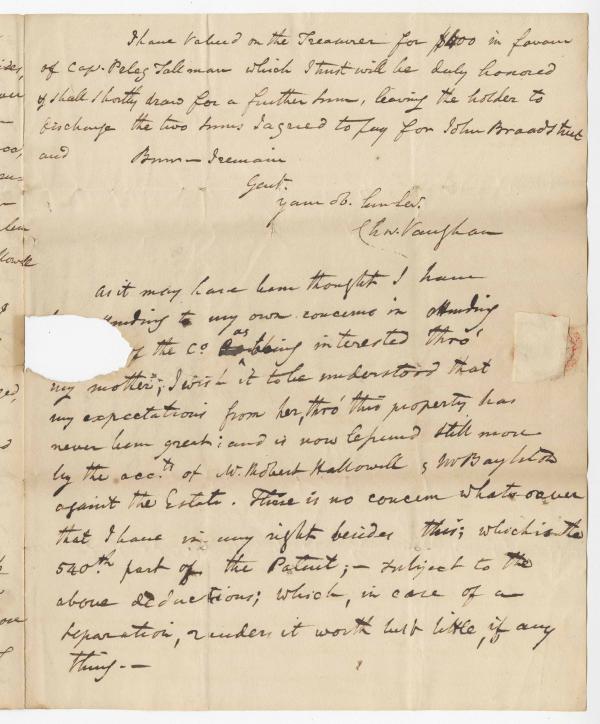 I have Valued on the Treasurer for $400 in favour
of Cap. Peleg Tallman which I trust will be duly honored
& shall shortly draw for a further sum, leaving the holder to
discharge the two sums I agreed to pay for John Broadstreet
and Burns — I remain
Gent.
your ob. hum Ser.
Chas. Vaughan
As it may have been thought I have
attending to my own concerns in attending
of the Co. as being interested thro'
my mother; I wish it to be understood that
my expectations from her, thro' this property has
never been great; and is now lessened still more
by the acc.ts of Mr. Robert Hallowell & Mr Boylston
against the Estate. There is no concern whatsoever
that I have in my right besides this; which is the
540.th part of the Patent; — subject to the
above deductions; which, in case of a
separation, renders it worth but little, if any
thing. —